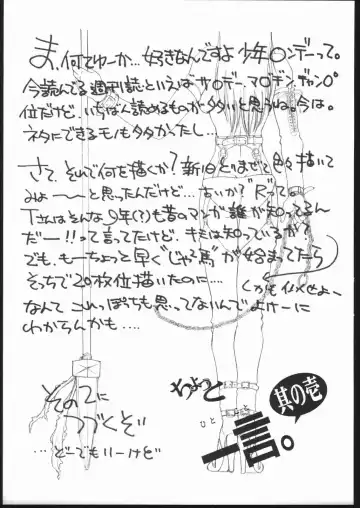 ま、何てゆーか…好きなんですよ少年〇ンデーって。
今読んでる週刊誌といえばサ〇デーマ〇ヂンヂャン〇。
位だけど、いちばん読めるものが多いと思うね。今は。
ネタにできるモノも多かったし…
さて、それで何を描くか？新旧とりまぜて色々描いて
みよ〜〜と思ったんだけど…古いか？"R"っての
Tさんはそんな9年(？)も昔のマンガ誰が知ってるん
だー！！って言ってたけど、キミは知っているか？
でも、もーちょっと早く"じゃじゃ馬"が始まってたら
そっちで20枚位描いたのに…
しかもイメせよ〜
なんて これっぽちも思ってないんでよけーに
わからんかも…
その2に
つづくぞ
…どーでもいーけど
ちょっと
ひと こと
一言。
其の壱